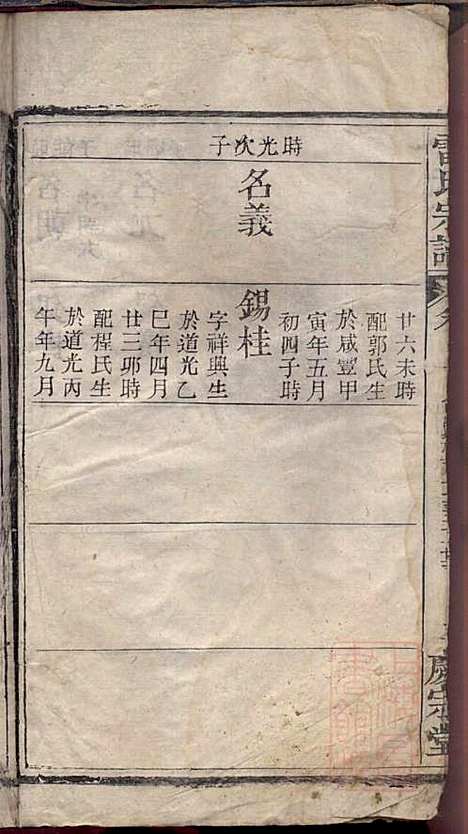 時光次子
名義
廿六未時
配郭氏生
於咸豐甲
寅年五月
初四子時
錫桂
字祥興生
於道光乙
巳年四月
廿三卯時
配程氏生
於道光丙
午年九月
氏宗譜
慶宗堂